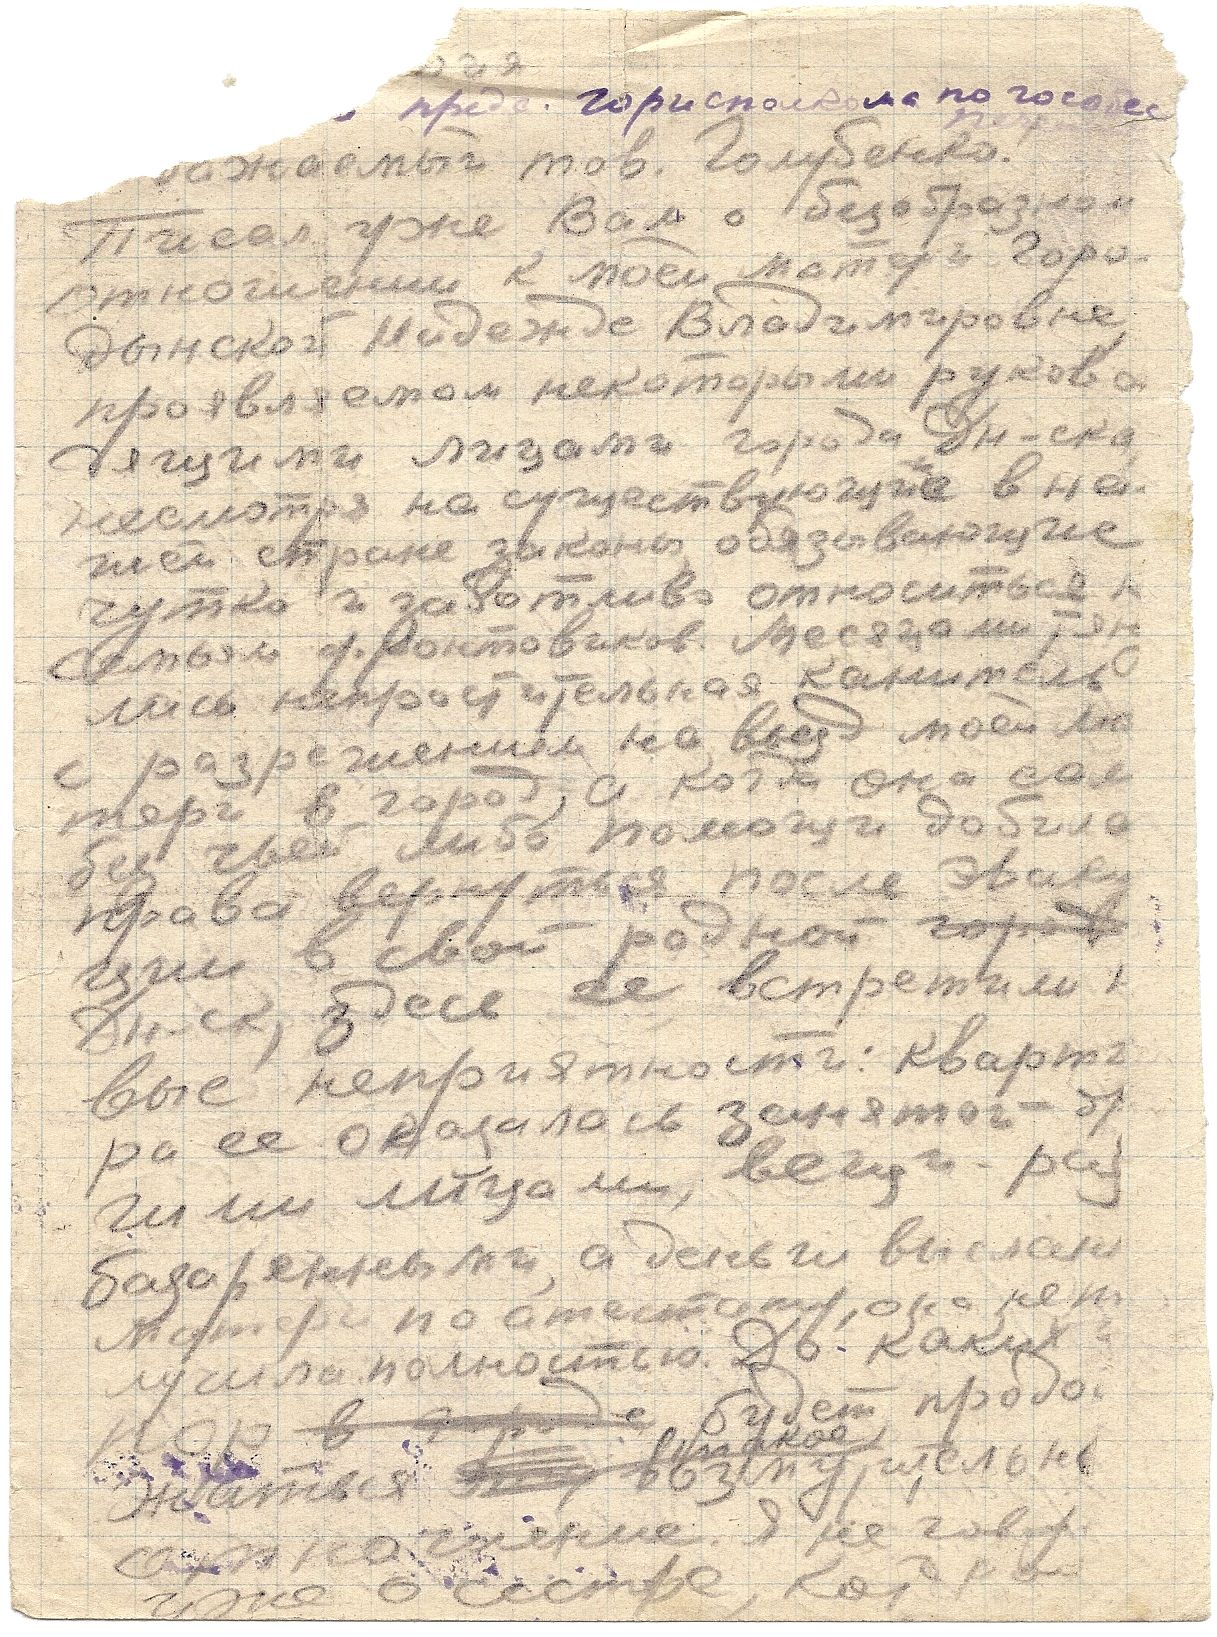 опия
предс. горисполкома по гособес
Уважаемый тов. Голубенко!
Писал уже Вам о безобразном
отношении к моей матери Горо-
дынской Надежде Владимировне,
проявляемом некоторыми руково
дящими лицами города Дн-ска,
несмотря на существующие в на-
шей стране законы, обязывающие
чутко и заботливо относиться к
семьям фронтовиков. Месяцами тян
лась непростительная канитель
с разрешением на въезд моей ма
тери в город, а когда она сам
без чьей либо помощи добила
права вернуться после эваку
ции в свой родной город
Дн-ск, здесь ее встретили н
вые неприятности: кварти
ра ее оказалась занятой др
гими лицами, вещи - раз
базаренными, а деньги выслан
матери по атестату, она не п
лучила полностью. До каких
пор в городе будет продол
жаться такое возмутительно
отношение. Я не говор
уже о сестре, кот